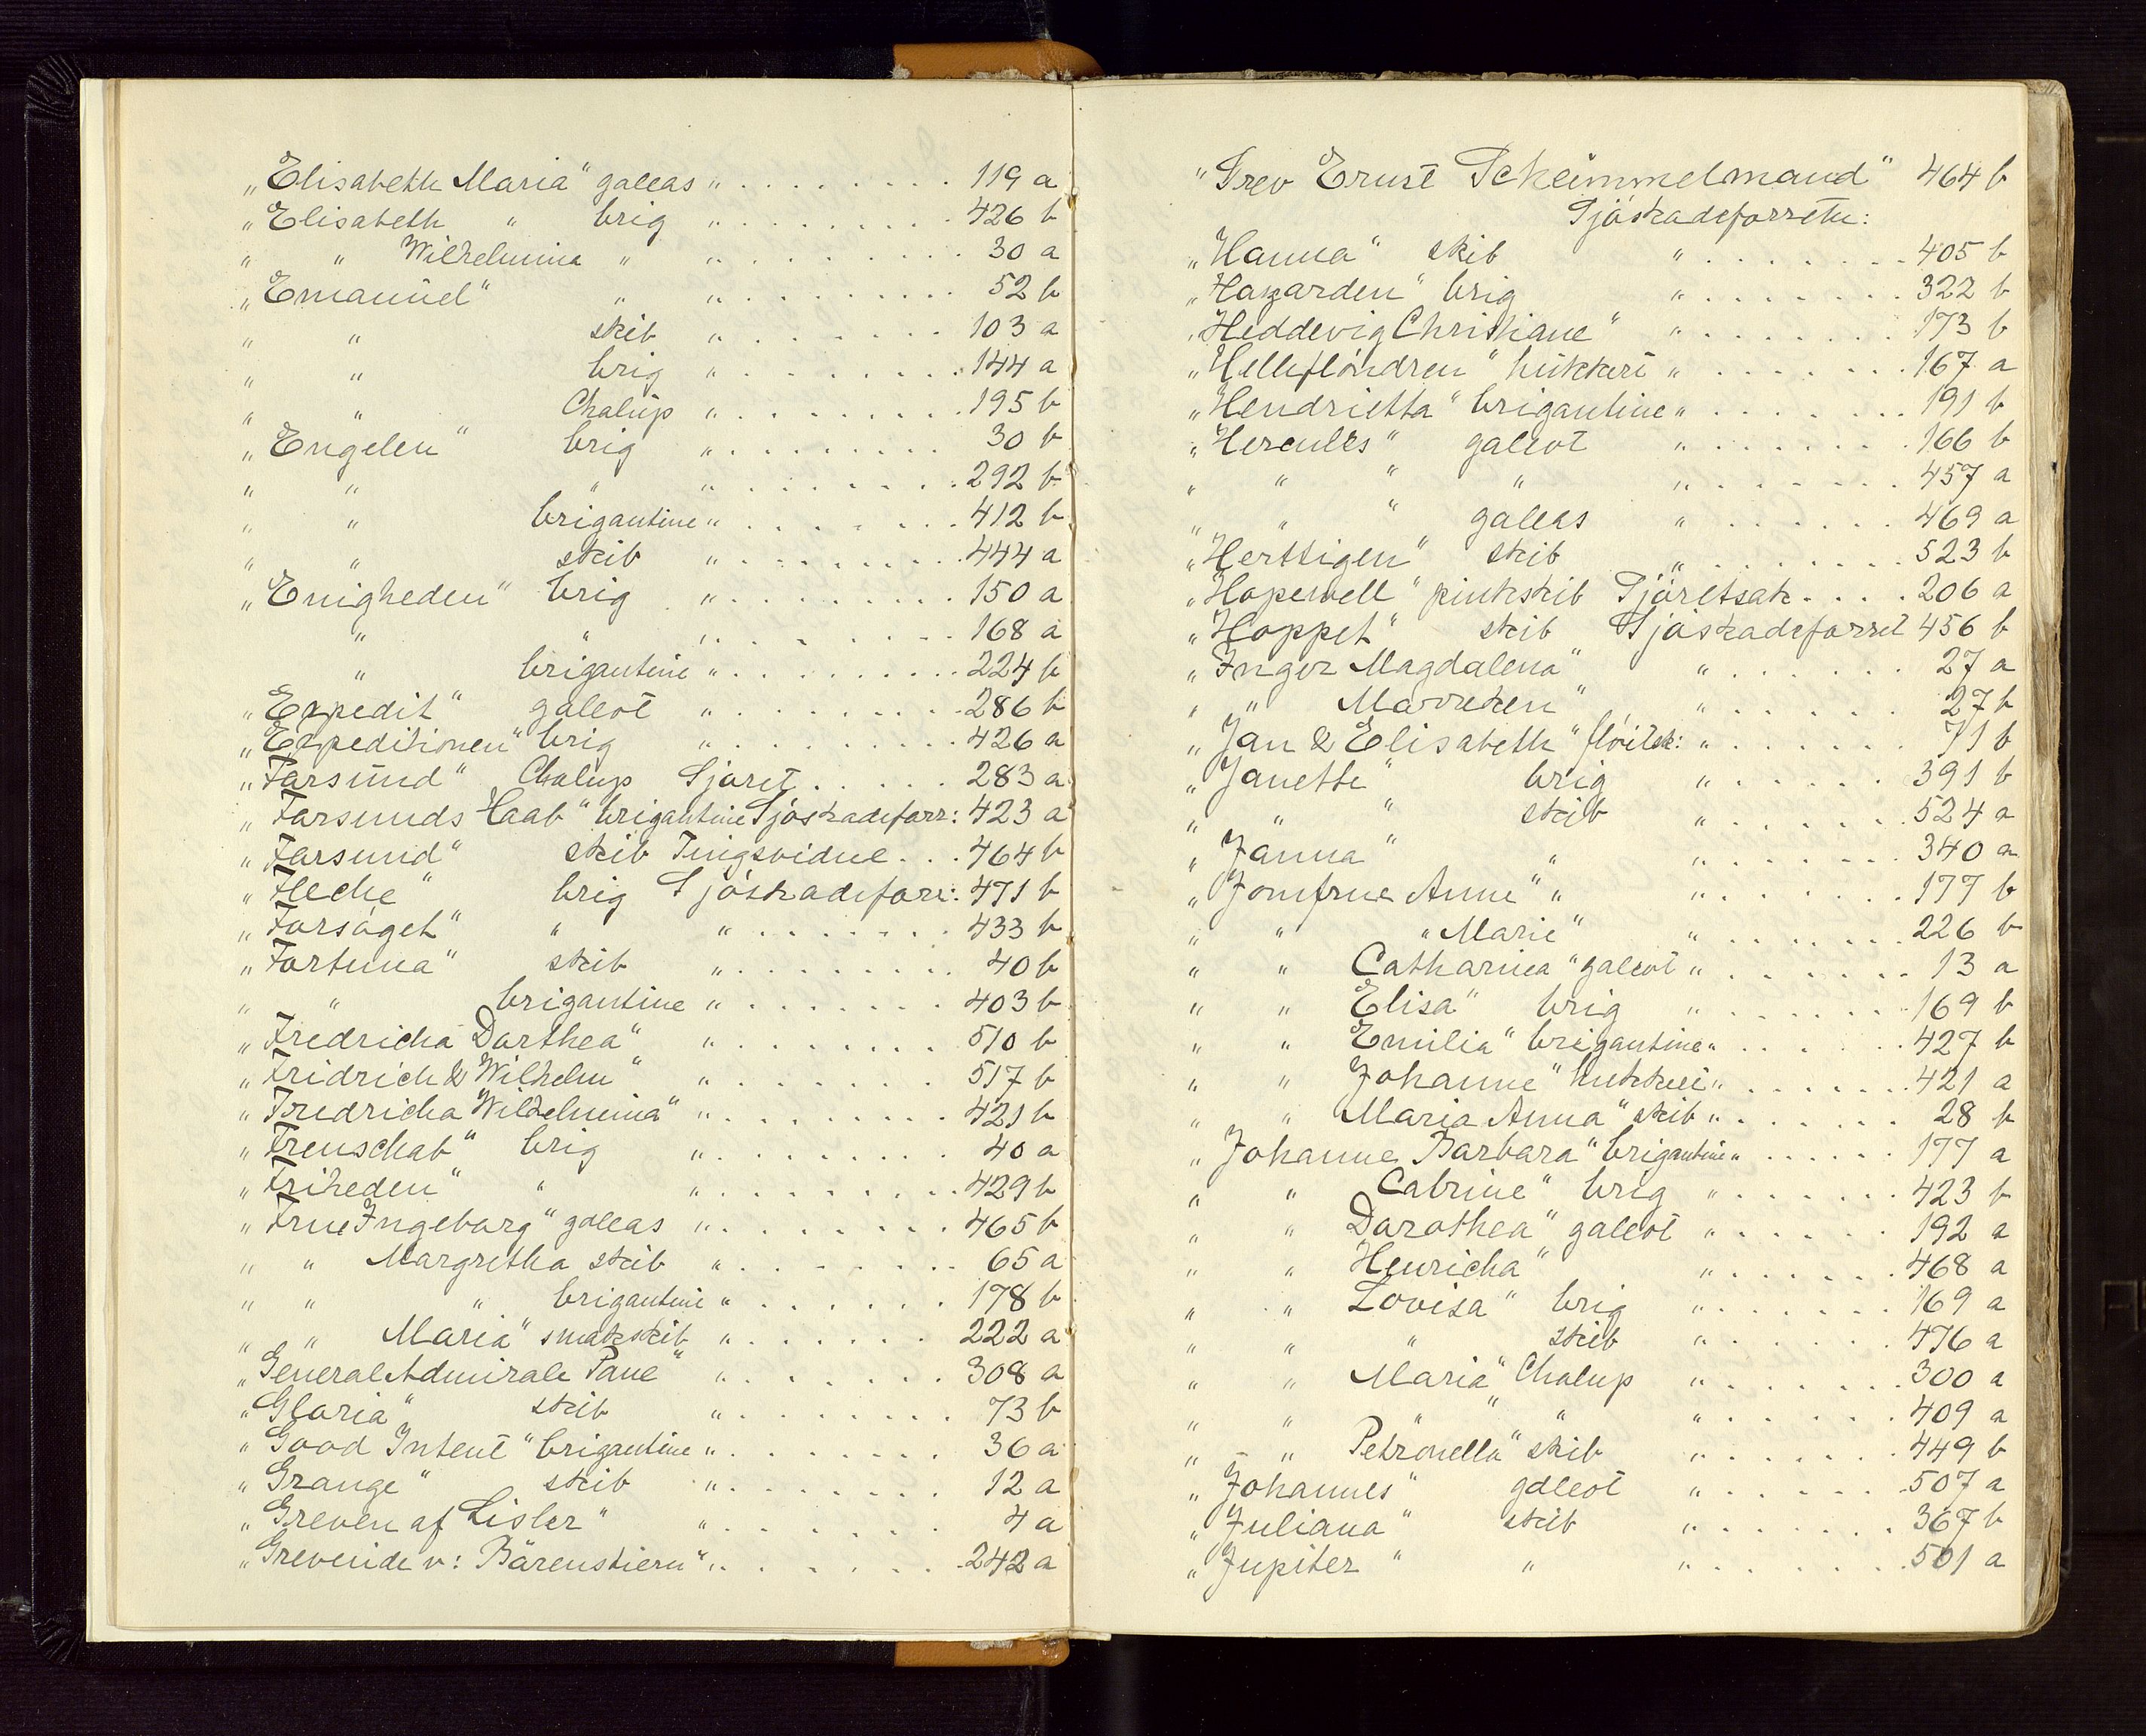 „Elisabeth Maria“ galeas „ . . . . . . . . 119 a
„Elisabeth „ brig „ . . . . . . . . 426 b
„ „ Wilhelmina „ „ . . . . . . . . 30 a
„Emanuel“ „ „ . . . . . . . . 52 b
„ „ skib „ . . . . . . . 103 a
„ „ brig „ . . . . . . . . 144 a
„ „ Chalup „ . . . . . . . . 195 b
„Engelen“ brig „ . . . . . . . . 30 b
„ „ „ „ . . . . . . . . 292 b
„ „ brigantine „ . . . . . . . 412 b
„ „ skib „ . . . . . . . . 444 a
„Enigheden“ brig „ . . . . . . . . 150 a
„ „ „ . . . . . . . . 168 a
„ brigantine „ . . . . . . . . 224 b
„Expedit“ galeot „ . . . . . . . . 286 b
„Expeditionen“ brig „ . . . . . . . . 426 a
„Farsund“ Chalup Sjöret . . . . . 283 a
„Farsunds Haab“ brigantine Sjöskadeforr: 423 a
„Farsund“ skib Tingsvidne . . . 464 b
„Heche“ brig Sjöskadeforr: 471 b
„Forsöget“ „ „ . . . . . . . 433 b
„Fortuna“ skib „ . . . . . . . . 40 b
„ „ brigantine „ . . . . . . . 403 b
„Fredricha Dorthea“ „ . . . . . . . . 510 b
„Fridrich & Wilhelm“ „ . . . . . . . 517 b
„Fredricha Wilhelmina“ „ . . . . . . . . 421 b
„Frenschab“ brig „ . . . . . . . . 40 a
„Friheden“ „ „ . . . . . . . . 429 b
„Frue Ingeborg“ galeas „ . . . . . . . . 465 b
„ „ Margretha skib „ . . . . . . . . 65 a
„ „ „ brigantine „ . . . . . . 178 b
„ „ Maria“ smakskib „ . . . . . . . 222 a
„General Admirale Pane“ „ . . . . . . . 308 a
„Gloria“ skib „ . . . . . . . . 73 b
„Good Intent“ brigantine „ . . . . . . . 36 a
„Grange“ skib „ . . . . . . . 12 a
„Greven af Lisler“ „ . . . . . . . 4 a
„Grevenide v: Bärenstiern“ „ . . . . . . . 242 a
„Grev Ernst Scheimmelmand“ 464 b
Sjöskadeforretn:
„Hanna“ skib „ . . . . . . . 405 b
„Hazarden“ brig „ . . . . . . . 322 b
„Heddevig Christiane“ „ . . . . . . . 173 b
„Helleflöndren“ hukkert „ . . . . . . . 167 a
„Hendrietta“ brigantine „ . . . . . . . 191 b
„Hercules“ galeot „ . . . . . . . 166 b
„ „ „ „ „ . . . . . . . 457 a
„ „ „ galeas „ . . . . . . 469 a
„Herttigen“ skib „ . . . . . . . 523 b
„Hopewell“ pinkskib Sjöretssak . . . . 206 a
„Hoppet“ skib Sjöskadeforret 456 b
„Inger Magdalena“ „ . . . . . . 27 a
„ „ Marreken“ „ . . . . . . 27 b
„Jan & Elisabeth“ flöitsk: „ . . . . . . 71 b
„Janette“ brig „ . . . . . . 391 b
„ „ „ skib „ . . . . . . 524 a
„Janna“ „ „ . . . . . . . 340 a
„Jomfrue Anne“ „ „ . . . . . . . 177 b
„ „ „Marie“ „ . . . . . . . 226 b
„ „ Catharina“ galeot „ . . . . . . . 13 a
„ „ Elisa“ brig „ . . . . . . . 169 b
„ „ Emilia“ brigantine „ . . . . . . 427 b
„ „ Johanne“ hukkert „ . . . . . . 421 a
„ „ Maria Anna“ skib „ . . . . . . 28 b
„Johanne Barbara“ brigantine „ . . . . . . 177 a
„ „ Catrine“ brig „ . . . . . . 423 b
„ „ Dorothea“ galeot „ . . . . . . 192 a
„ „ Henricha“ „ . . . . . . 468 a
„ „ Lovisa“ brig „ . . . . . . 169 a
„ „ „ skib „ . . . . . . 476 a
„ „ Maria“ Chalup „ . . . . . . 300 a
„ „ „ „ „ „ . . . . . . 409 a
„ „ Petronella“ skib „ . . . . . . 449 b
„Johannes“ galeot „ . . . . . . 507 a
„Juliana“ skib „ . . . . . . . 367 b
„Jupiter“ „ „ . . . . . . . 501 a